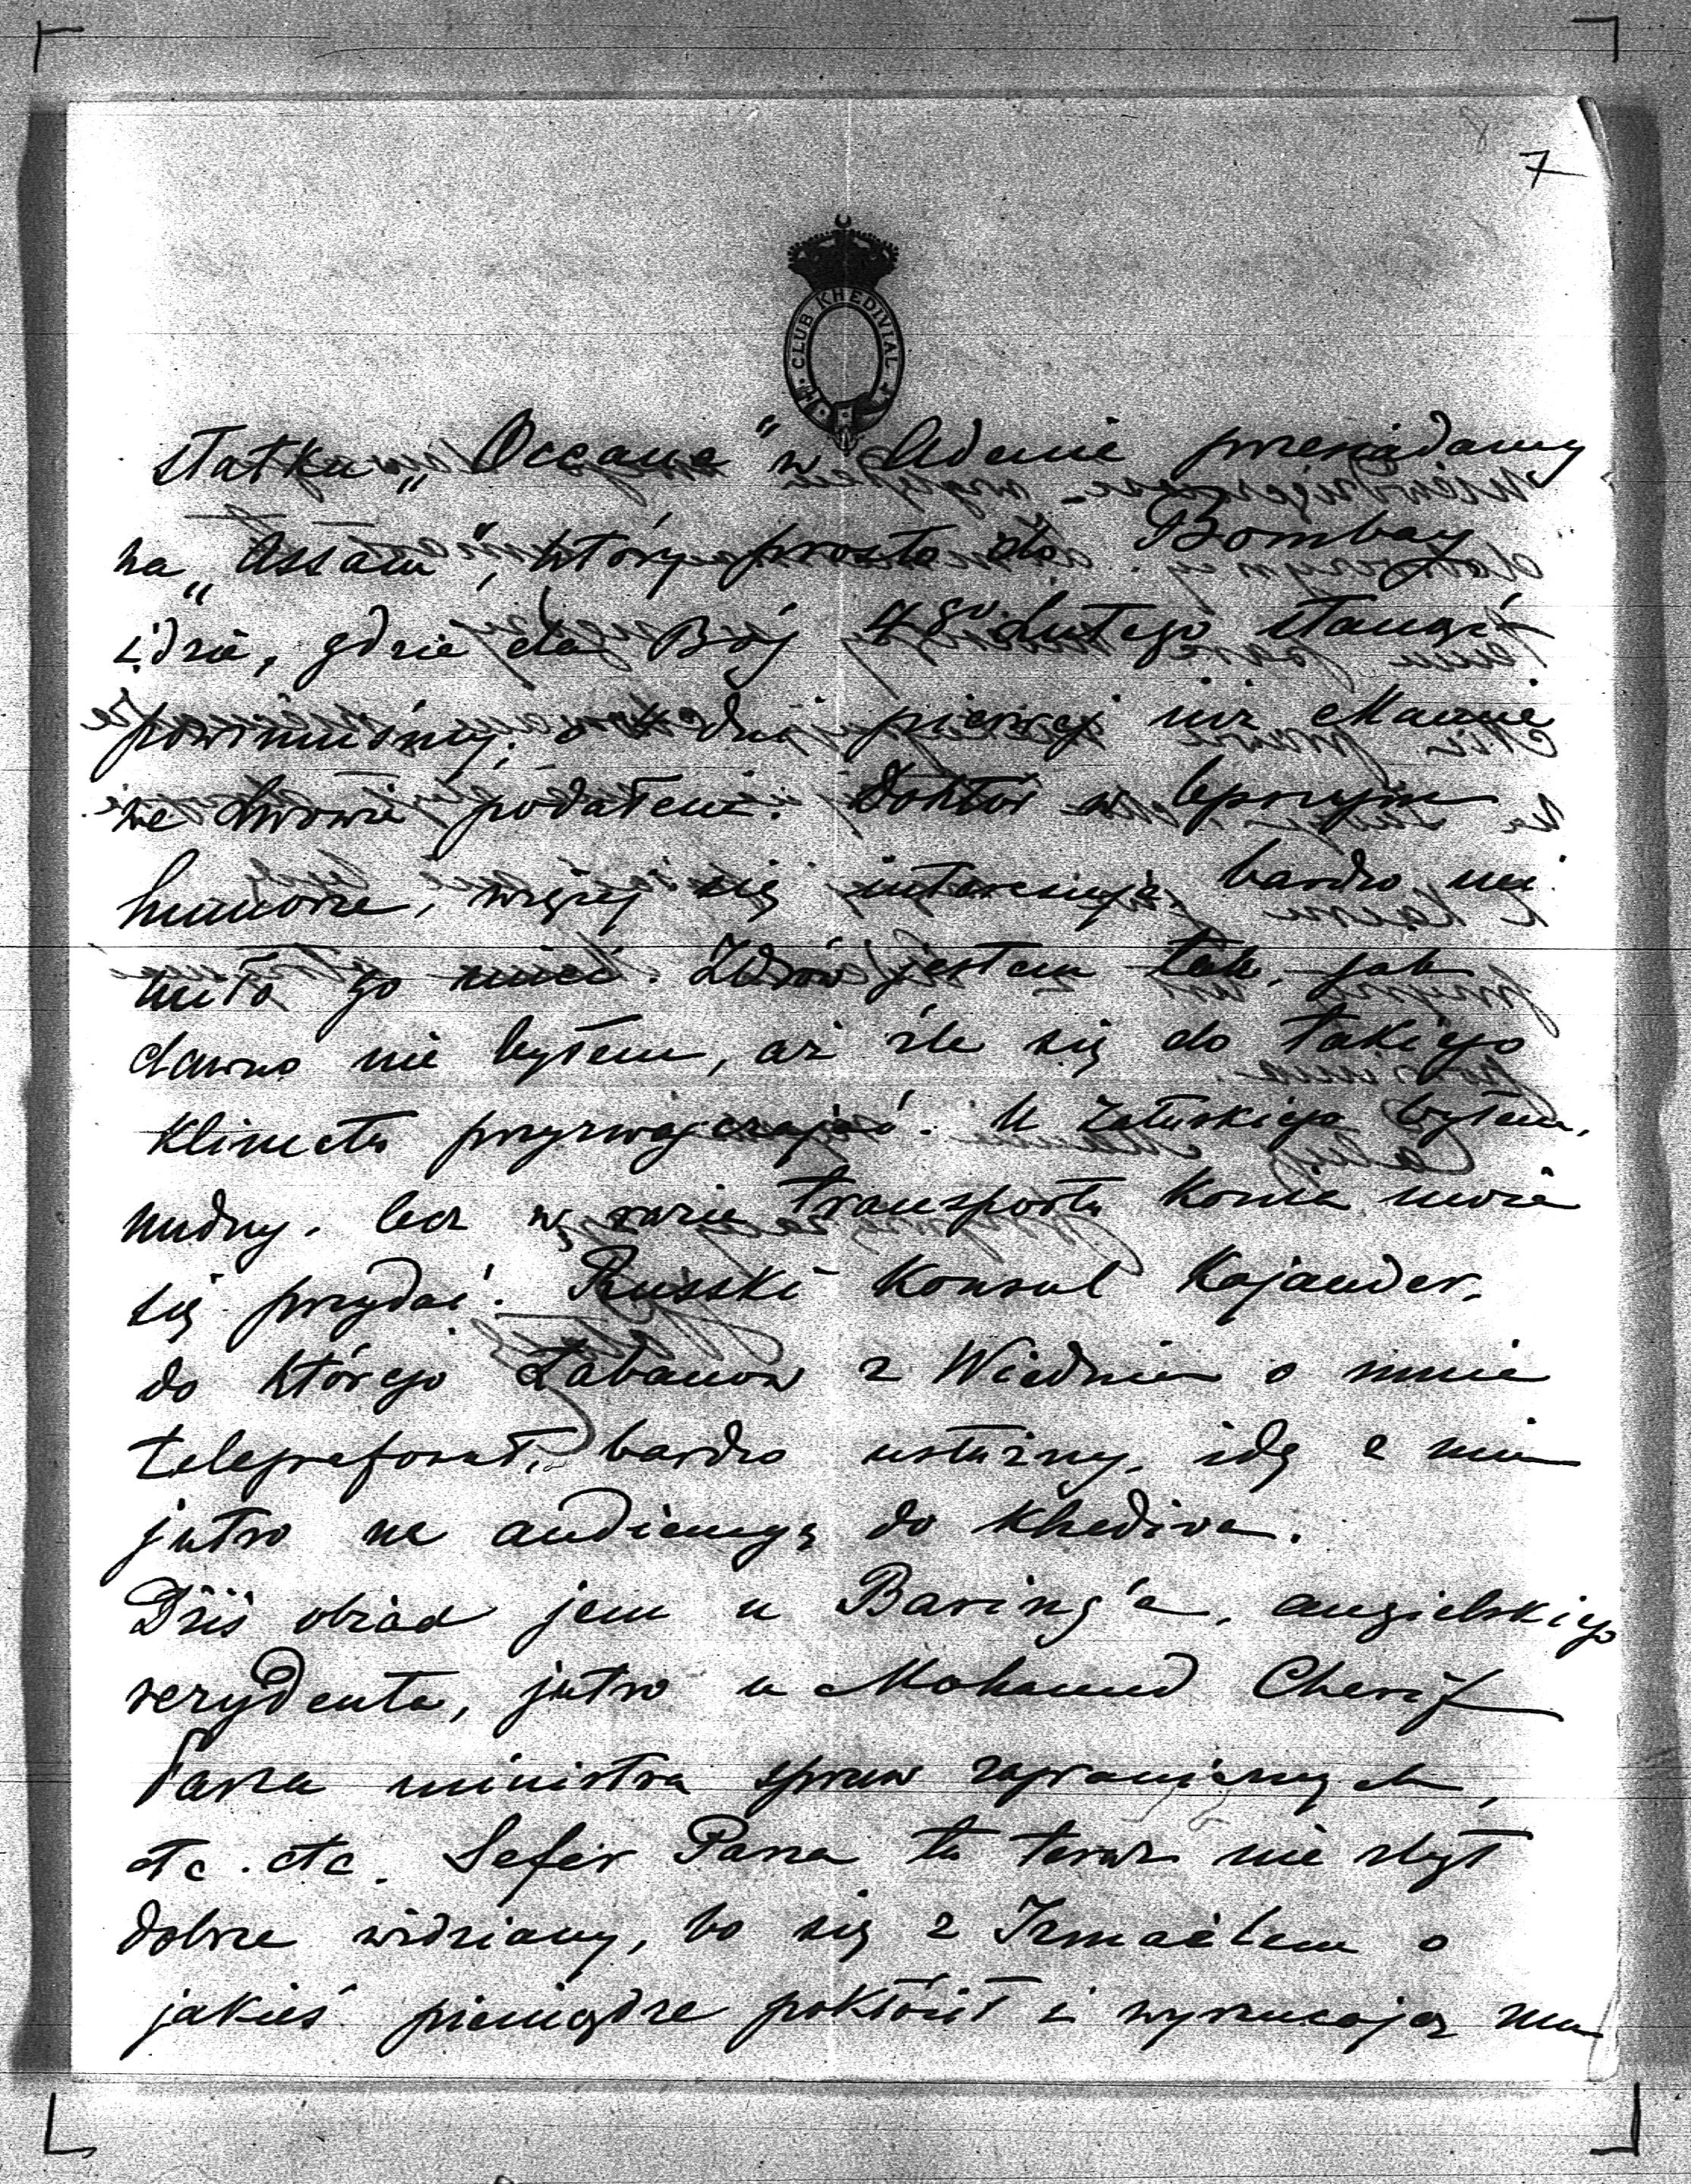 7
CLUB KHEDIVIAL
statku „Oceana" w Adenie przesiadamy
na „Assam", który prosto do Bombay
idzie, gdzie da Bóg 8go Lutego stanąć
powinniśmy, dni pierwej niż Mamie
we Lwowie podałem. Doktór w lepszym
humorze, więcej się interesuje, bardzo mi
miło go mieć. Zdrów jestem tak, jak
dawno nie byłem, aż źle się do takiego
klimatu przyzwyczajać. U Załuskiego byłem,
nudny, lecz w razie transportu konia może
się przydać. Russki Konsul Kojander,
do którego Łabanow z Wiednia o mnie
telegrafował, bardzo usłużny, idę z nim
jutro na audiencyę do Khediva.
Dziś obiad jem u Baring'a, angielskiego
rezydenta, jutro u Mohamed Cherif
Pasza ministra spraw zagranicznych,
etc. etc. Sefer Pasza tu teraz nie zbyt
dobrze widziany, bo się z Izmaëlem o
jakieś pieniądze pokłócił i wyrzucają mu